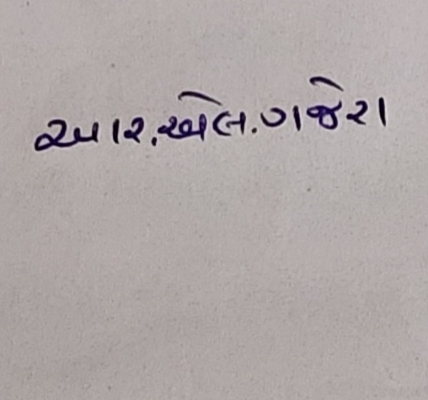 આર.એલ.ગજેરા